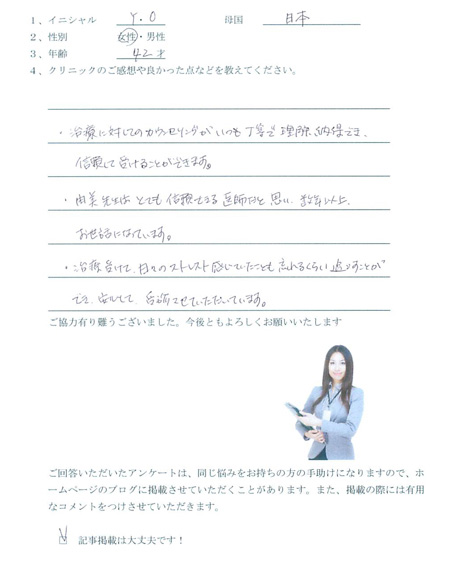 1、イニシャル Y.O 母国 日本
2、性別 女性・男性
3、年齢 42才
4、クリニックのご感想や良かった点などを教えてください。
・治療に対してのカウンセリングがいつも丁寧で理解、納得でき、
信頼して受けることができます。
・由美先生はとても信頼できる医師だと思い、数年以上、
お世話になっています。
・治療受けて、日々のストレスと感じていたことも忘れるくらい過ごすことが
でき、安心して、通院させていただいています。
ご協力有り難うございました。今後ともよろしくお願いいたします
ご回答いただいたアンケートは、同じ悩みをお持ちの方の手助けになりますので、ホ
ームページのブログに掲載させていただくことがあります。また、掲載の際には有用
なコメントをつけさせていただきます。
記事掲載は大丈夫です！